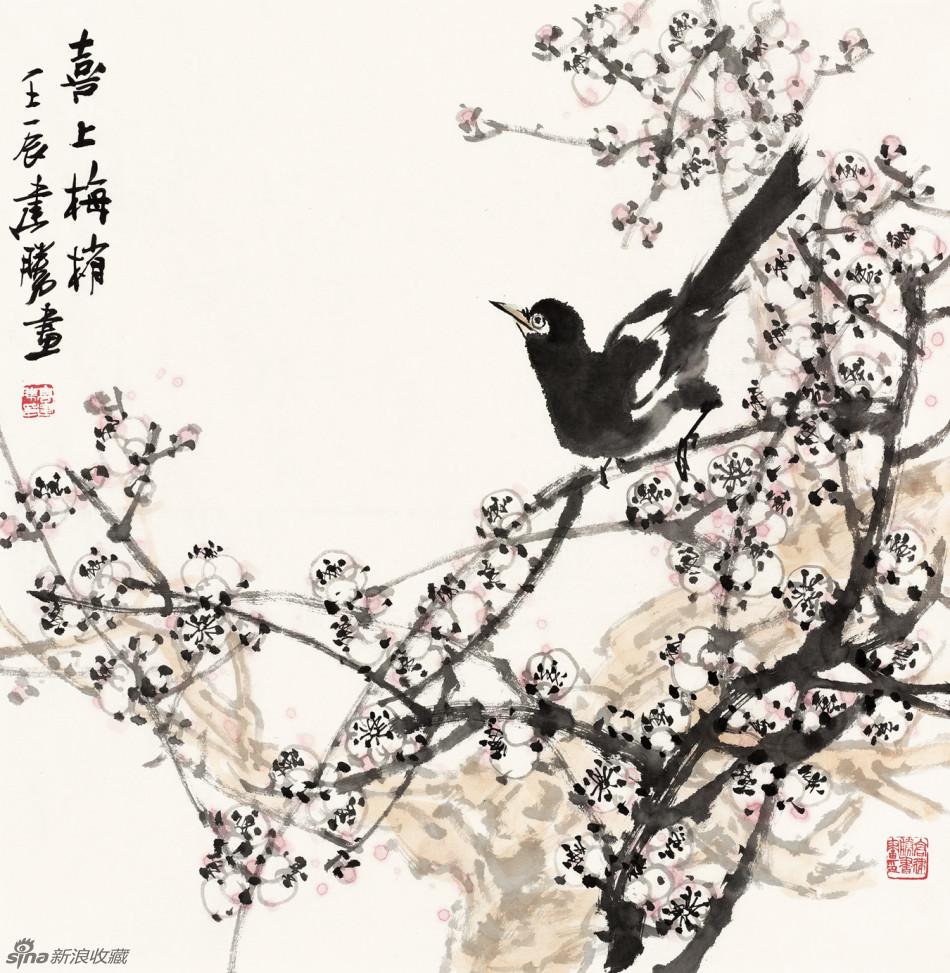 喜上梅梢
壬辰建勝畫
sina新浪收藏